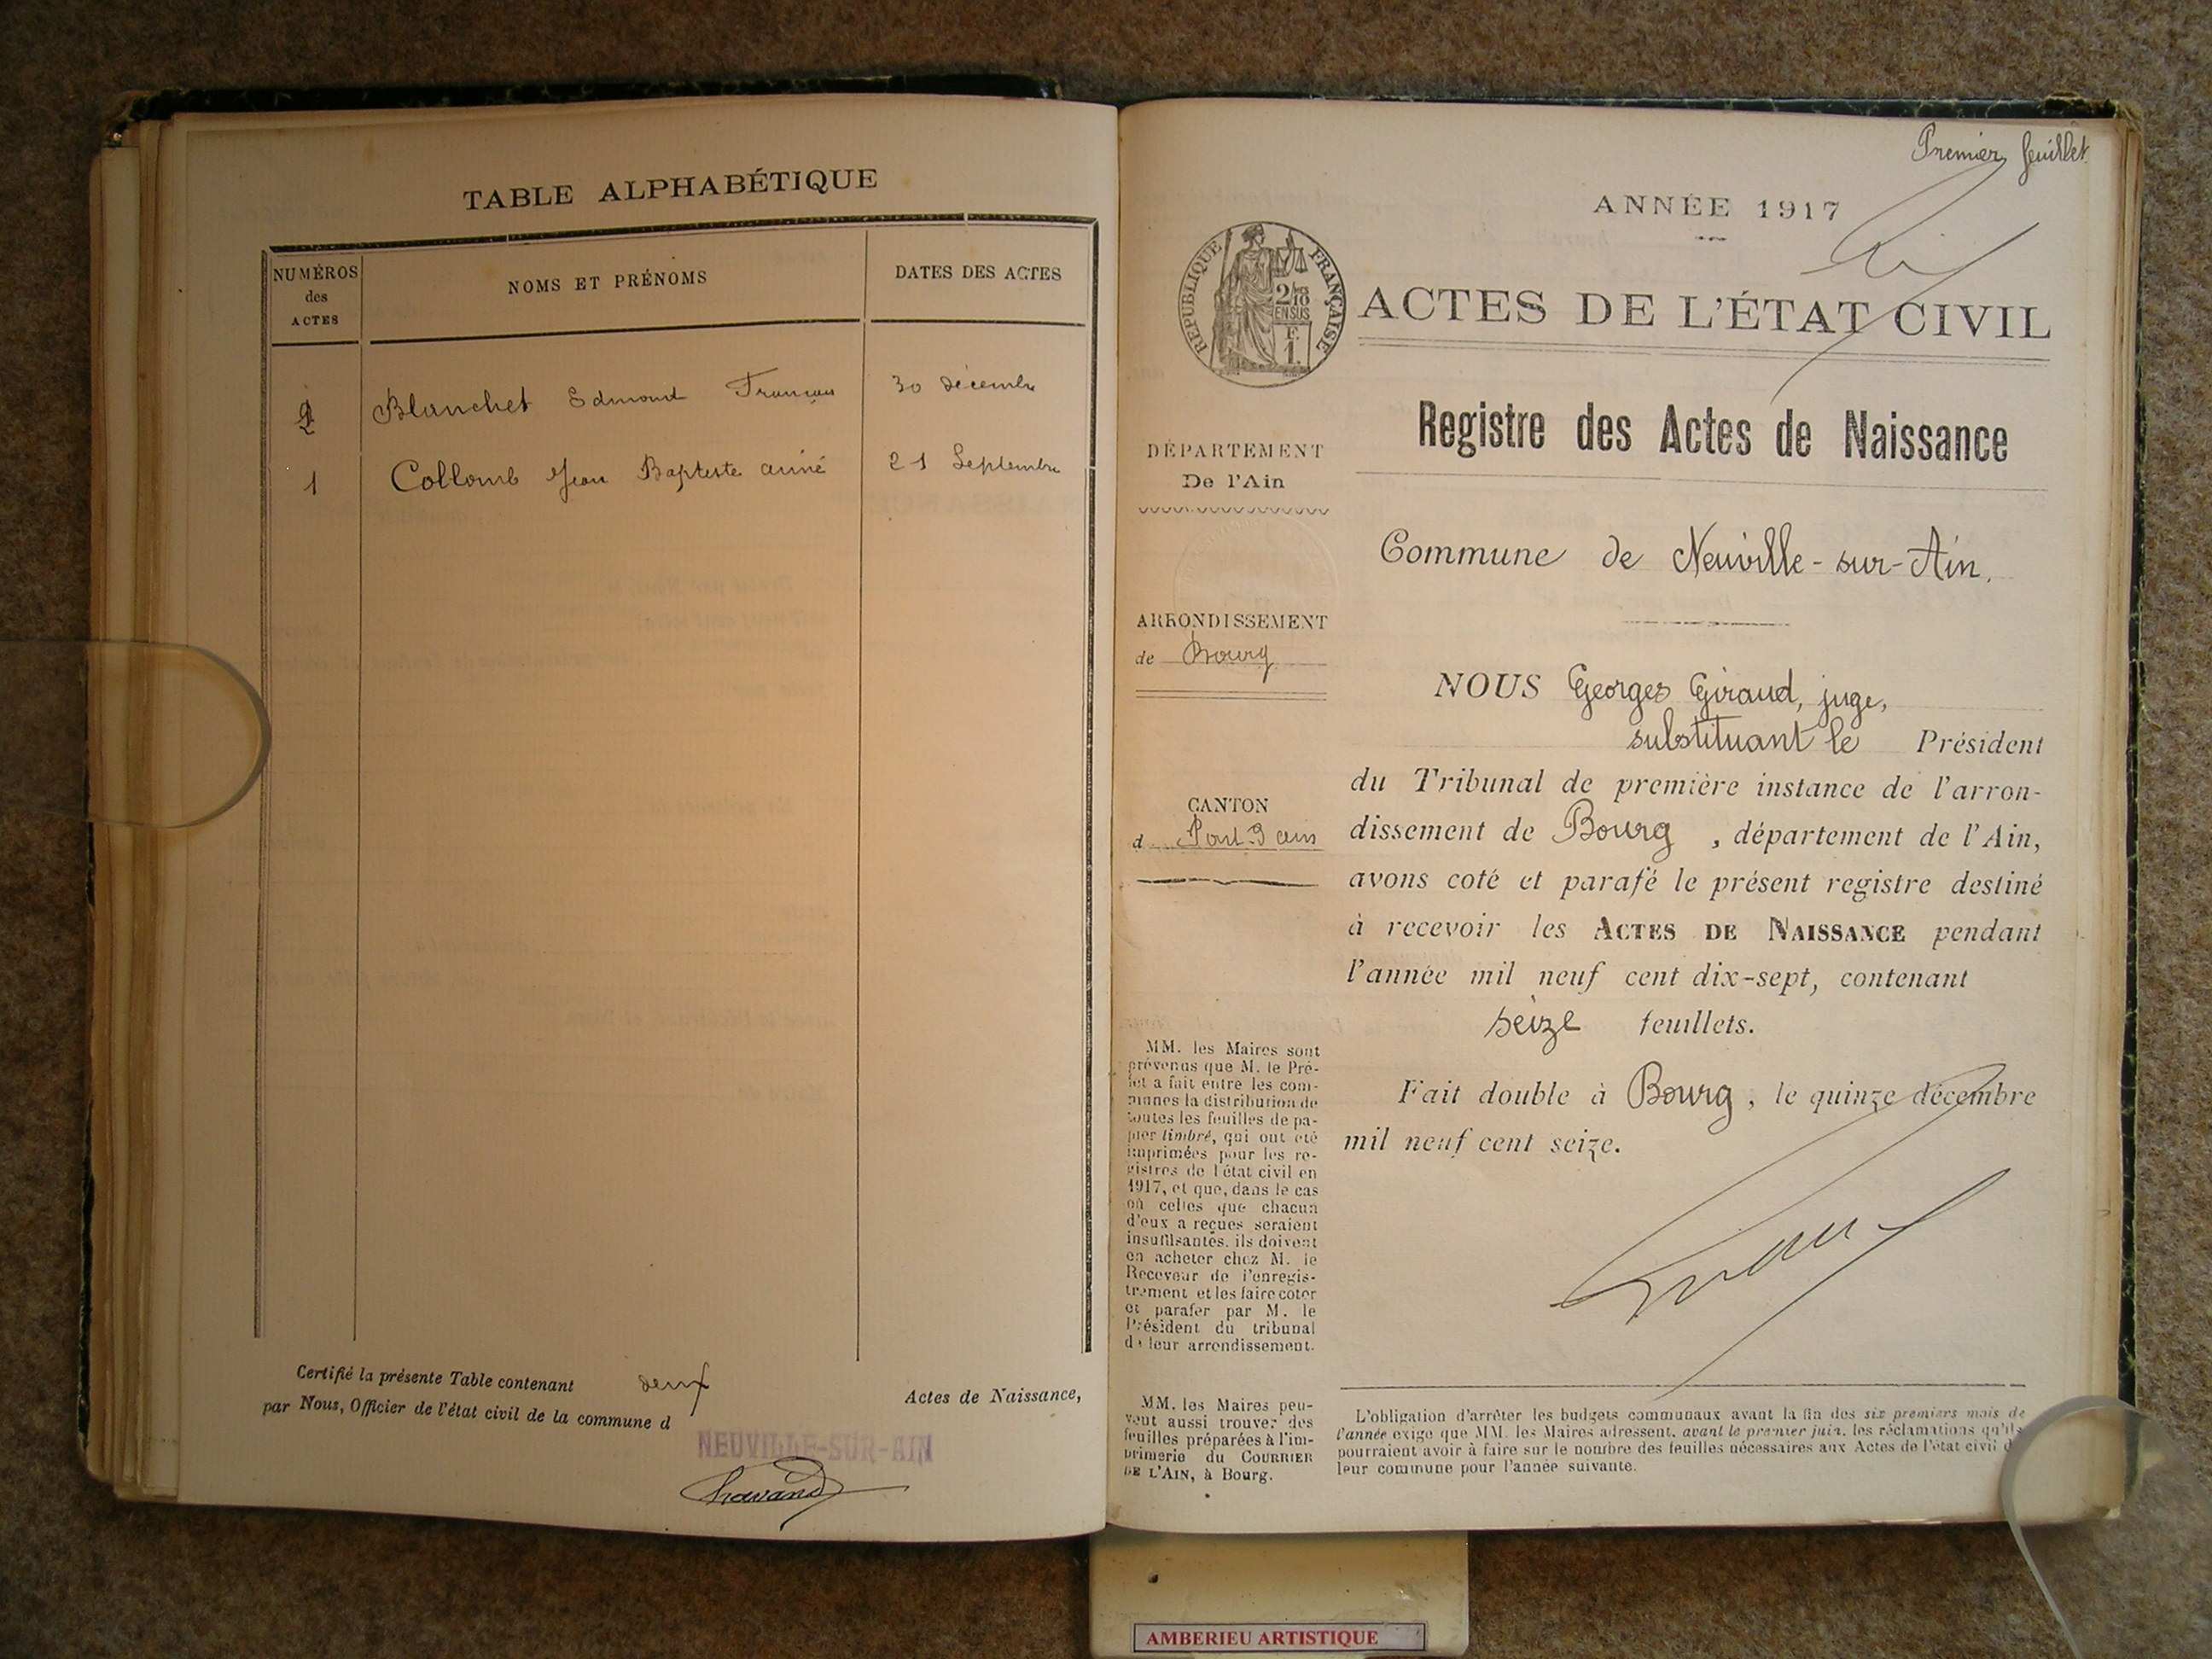 TABLE ALPHABÉTIQUE
NUMÉROS
des
ACTES
NOMS ET PRÉNOMS
DATES DES ACTES
2 Blanchet Edmond François 30 décembre
1 Collomb Jean Baptiste aimé 21 Septembre
Certifié la présente Table contenant deux Actes de Naissance,
par Nous, Officier de l'état civil de la commune d
NEUVILLE-SUR-AIN
Premier feuillet
ANNÉE 1917
RÉPUBLIQUE FRANÇAISE
2/10
EN SUS
F.
1.
ACTES DE L'ÉTAT CIVIL
Registre des Actes de Naissance
DÉPARTEMENT
De l'Ain
Commune de Neuville-sur-Ain.
ARRONDISSEMENT
de Bourg
CANTON
d Pont d'ain
NOUS Georges Giraud, juge,
substituant le Président
du Tribunal de première instance de l'arron-
dissement de Bourg, département de l'Ain,
avons coté et parafé le présent registre destiné
à recevoir les ACTES DE NAISSANCE pendant
l'année mil neuf cent dix-sept, contenant
seize feuillets.
Fait double à Bourg, le quinze décembre
mil neuf cent seize.
MM. les Maires sont
prévenus que M. le Pré-
fet a fait entre les com-
munes la distribution de
toutes les feuilles de pa-
pier timbré, qui ont été
imprimées pour les re-
gistres de l'état civil en
1917, et que, dans le cas
où celles que chacun
d'eux a reçues seraient
insuffisantes, ils doivent
en acheter chez M. le
Receveur de l'enregis-
trement et les faire coter
et parafer par M. le
Président du tribunal
de leur arrondissement.
MM. les Maires peu-
vent aussi trouver des
feuilles préparées à l'im-
primerie du COURRIER
DE L'AIN, à Bourg.
L'obligation d'arrêter les budgets communaux avant la fin des six premiers mois de
l'année exige que MM. les Maires adressent, avant le premier juin, les réclamations qu'ils
pourraient avoir à faire sur le nombre des feuilles nécessaires aux Actes de l'état civil de
leur commune pour l'année suivante.
AMBERIEU ARTISTIQUE